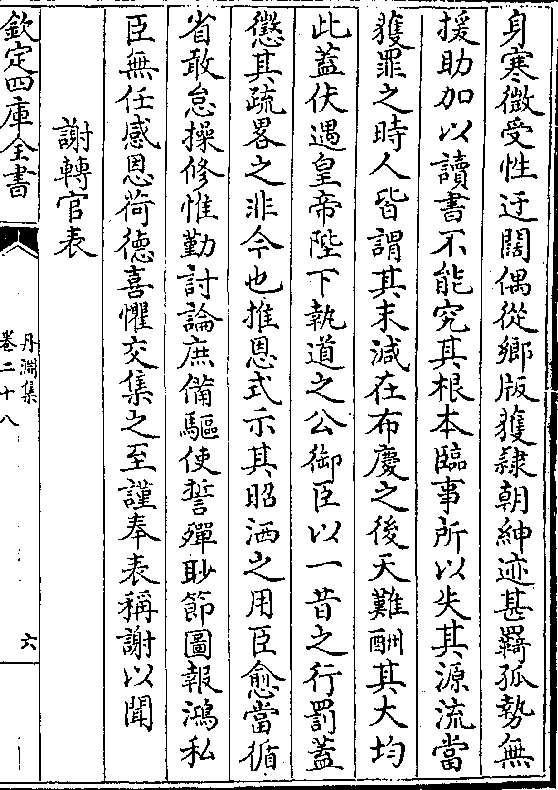 身寒微受性迂闊偶從鄉版獲隷朝紳迹甚羇孤勢無
援助加以讀書不能究其根本臨事所以失其源流當
獲罪之時人皆謂其末減在布慶之後天難酬其大均
此蓋伏遇皇帝陛下執道之公御臣以一昔之行罰蓋
懲其疏畧之非今也推恩式示其昭洒之用臣愈當循
省敢怠操修惟勤討論庶備驅使誓殫眇節圖報鴻私
臣無任感恩荷德喜懼交集之至謹奉表稱謝以聞
謝轉官表
欽定四庫全書
丹淵集
卷二十八
六